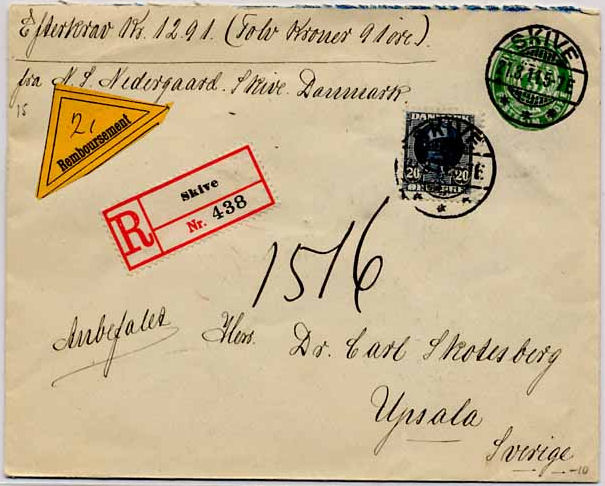 Efterkrav Kr. 12.91. (Tolv Kroner 91 öre).
fra N. S. Nedergaard. Skive. Danmark
15
SKIVE
DANMARK
SKIVE
20 20
Remboursement
R
Skive
Nr. 438
1516
Anbefalet
Herr. Dr. Carl Skotesberg
Upsala
Sverige
-10